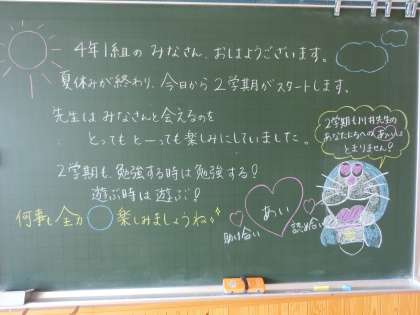 4年1組の みなさん、おはようございます。
夏休みが終わり、今日から2学期がスタートします。
先生は みなさんと会えるのを
とっても とーっても楽しみにしていました。
2学期も、勉強する時は勉強する!
遊ぶ時は 遊ぶ!
何事も 全力〇楽しみましょうね
2学期も川井先生の
あなたたちへの あい♡は
とまりません?
あい
助け合い
認め合い